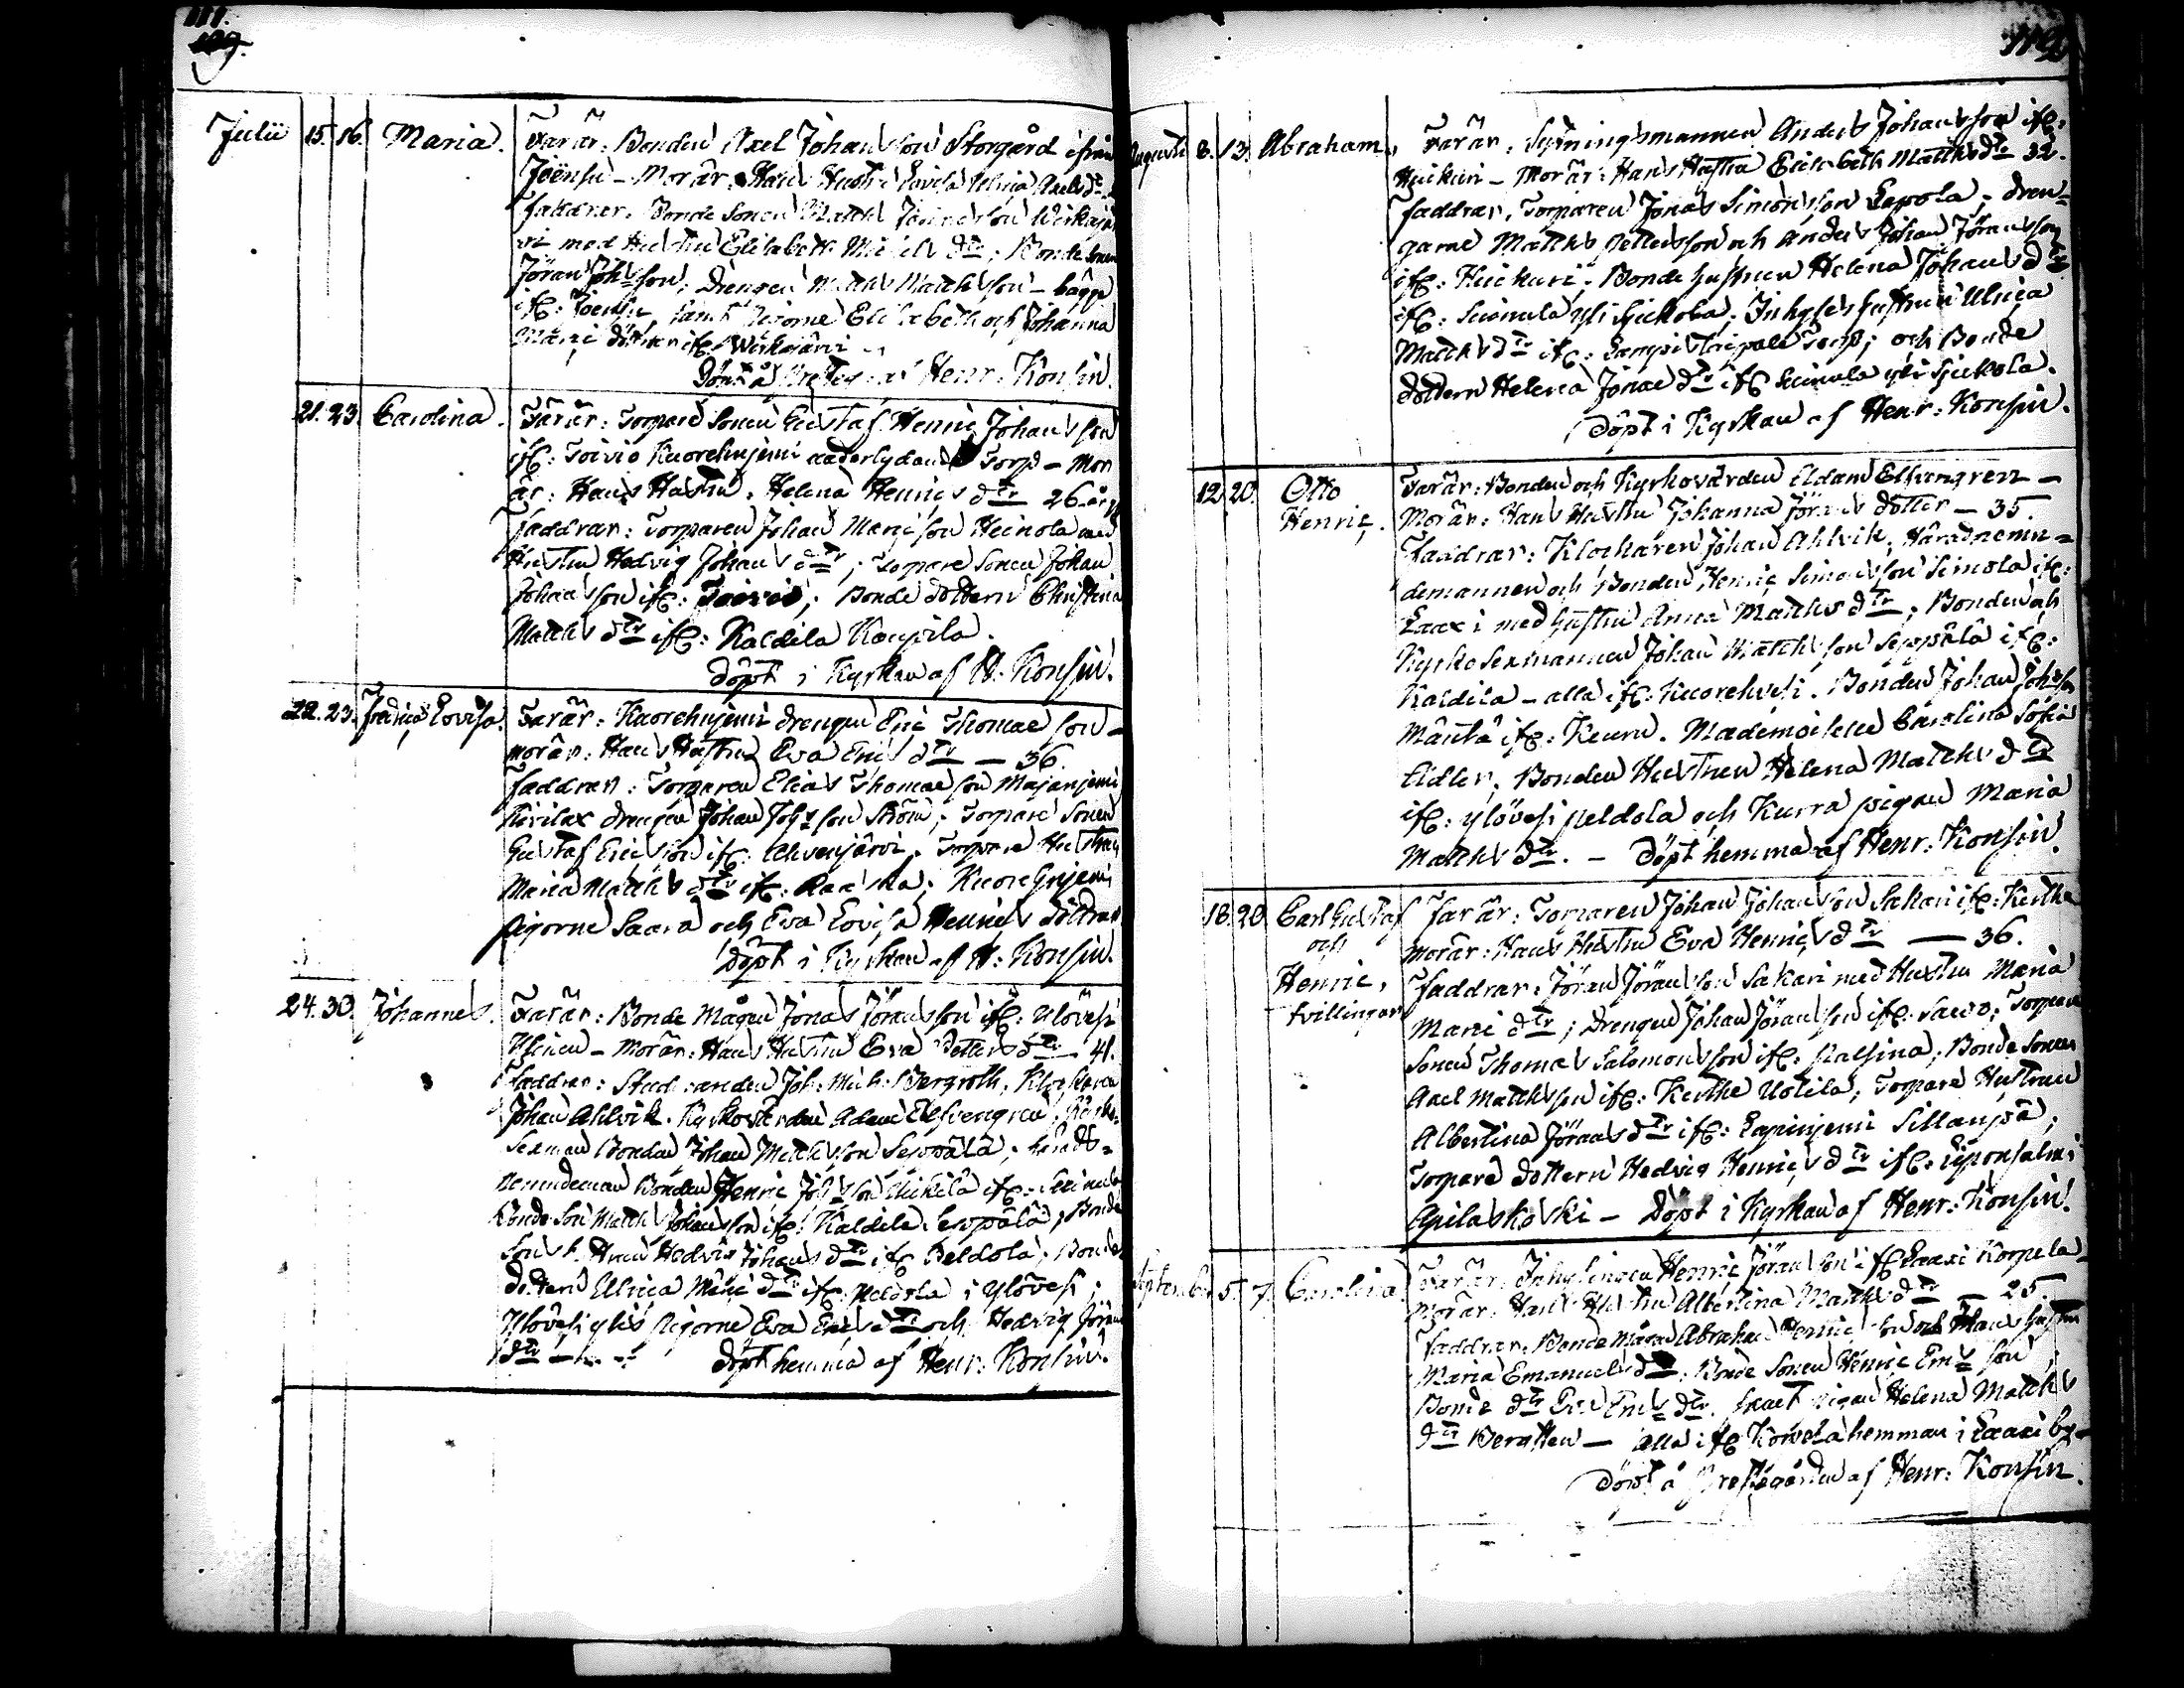 111.
109.
Julii 15. 16. Maria. Far är: Bonden Axel Johansson Storgård ifrån
Joënsu – Mor är: Hans Hustru Lovisa Ulrica Axels dr
Faddrar: Bonde Sonen Matth
med Hustru Elisabeth Michels dr; Bonde Sonen
Jöran Johsson; Drengen Matths Matthsson – bägge
ifr: Joensu samt Pigorne Elisabeth och Johanna
döttrar ifr: Werkajärvi
Döpt å af Henr: Konsin.
21. 23. Carolina. Far är: Torpare Sonen Gustaf Henric Johansson
ifr: Toivio Kuorehnjemi underlydande Torp – Mor
är: Hans Hustru Helena Henrics dr 26 år
Faddrar: Torparen Johan Maricson Heinola med
Hustru Hedvig Johans dr; Torpare Sonen Johan
Johansson ifr: Toivio; Bonde dottern Christina
Matths dr ifr: Kaldila Kaupila.
döpt i Kyrkan af H: Konsin.
22. 23. Fredrica Lovisa. Far är: Kuorehnjemi drengen Eric Thomae son –
mor är: Hans Hustru Eva Erics dr — 36.
Faddrar: Torparen Elias Thomae son Majanjemi
Kirilax drengen Johan Johsson Ström; Torpare Sonen
Gustaf Ericsson ifr: Ahvenjärvi. Torpare Hustrun
Maria Matths dr ifr: Raaska; Kuorehnjemi
pigorne Saara och Eva Lovisa Henrics döttrar
Döpt i Kyrkan af H: Konsin.
24. 30. Johannes. Far är: Bonde Mågen Jonas Jöransson ifr: Ylövesi
Ylinen – Mor är: Hans Hustru Eva Petters dr 41.
Faddrar: Studeranden Joh: Mich: Bergroth, Klockaren
Johan Ahlvik. Kyrkovärden Adam Elfvengren; Kyrko-
Sexman Bonden Johan Matthsson Seppälä; härads-
Nemndeman Bonden Henric Johsson Uckilä ifr: Suinula
Bonde Son Matths Johansson ifr: Kaldila Seppälä; Bonde
Sons Hustrun Hedvig Johans dr ifr Peldola; Bonde
dottern Ulrica Marie dr ifr: Peldola i Ylövesi;
Ylövesi ylis Pigorne Eva Erics dr och Hedvig Jörans
dr — döpt hemma af Henr: Konsin.
112
Augusti 8. 13. Abraham. Far är: Sytningsmannen Anders Johansson ifr:
Huikuri – Mor är: Hans Hustru Elisabeth Matths dr 32.
Faddrar, Torparen Jonas Simonsson Lapola; dren-
garne Matths Pettersson och Anders Johan Jöransson
ifr: Huikuri; Bonde hustrun Helena Johans dr
ifr: Suinula yli Sjukola; Inhyseshustrun Ulrica
Matths dr ifr: Lampi Taipale Torp; och Bonde
dottern Helena Jonae dr ifr Suinula yli Sjukola.
Döpt i Kyrkan af Henr: Konsin.
12. 20. Otto
Henric. Far är: Bonden och Kyrkovärden Adam Elfvengren –
Mor är: Hans Hustru Johanna Jörans dotter – 35.
Faddrar: Klockaren Johan Ahlvik, Häradsnemn-
demannen och Bonden Henric Simonsson Simola ifr:
Laaxi med hustru Anna Matths dr; Bonden och
Kyrko Sexmannen Johan Matthsson Seppälä ifr:
Kaldila – alla ifr: Kuorehvesi. Bonden Johan Johsson
Mänttä ifr: Keuru. Mademoiselle Carolina Sofia
Adler, Bonden Hustrun Helena Matths dr
ifr: Ylövesi Peldola och Kurra pigan Maria
Matths dr. – Döpt hemma af Henr: Konsin.
18. 20. Carl Gustaf
och
Henric,
tvillingar Far är: Torparen Johan Johansson Sakari ifr: Keuthe
Mor är: Hans Hustru Eva Henrics dr — 36.
Faddrar: Jöran Jöransson Sakari med Hustru Maria
Marie dr; Drengen Johan Jöransson ifr: Savo; Torpare
Sonen Thomas Salomonsson ifr: Palsina; Bonde Sonen
Axel Matthsson ifr: Keuthe Uotila; Torpare Hustrun
Albertina Jörans dr ifr: Lapinjemi Sillanpä;
Torpare dottern Hedvig Henrics dr ifr: Liponsalmi
Apilaskoski – Döpt i Kyrkan af Henr: Konsin.
September 5. 7. Carolina. Far är: Inhysingen Henric Jöransson ifr Laaxi Korpela
Mor är: Hans Hustru Albertina Matths dr – 25.
Faddrar. Bonde Mågen Abraham Henricson och Hans hustru
Maria Emanuels dr. Bonde Sonen Henric Ems son;
Bonde dr Eva Ems dr. samt Pigan Helena Matths
dr Bergsten – alla ifr Korpela hemman i Laaxi by –
Döpt å Prestegården af Henr: Konsin.